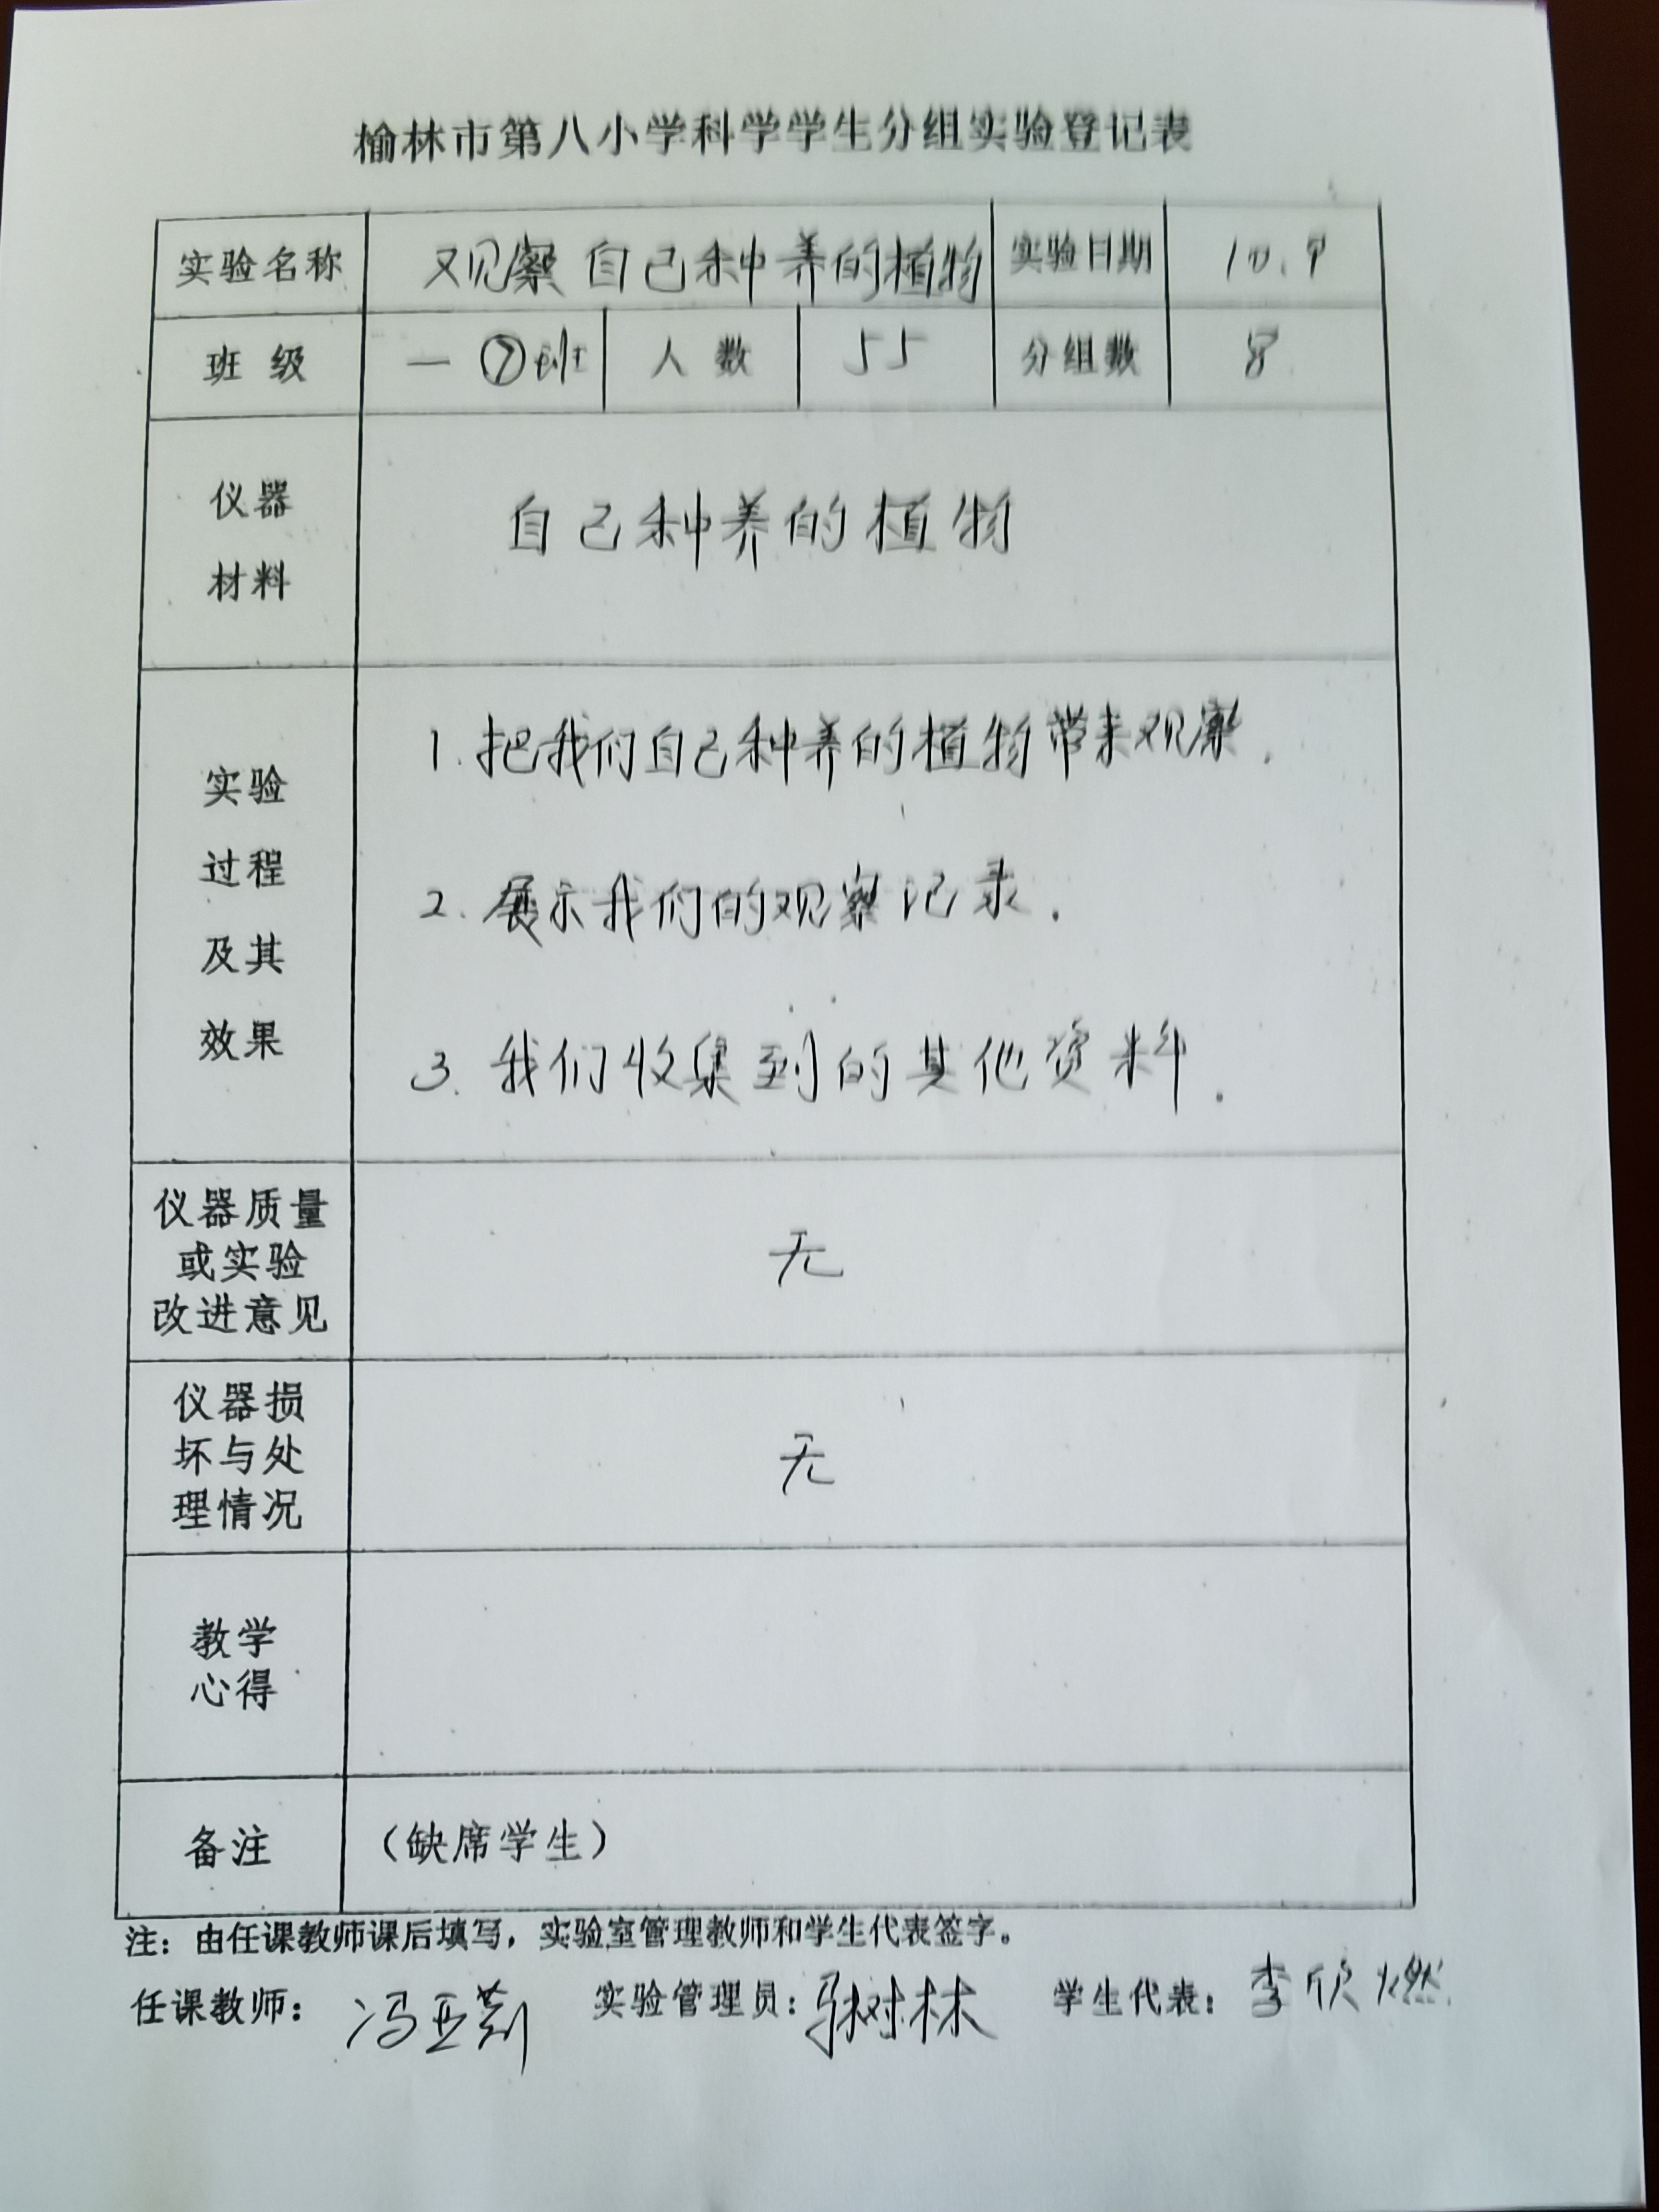 榆林市第八小学科学学生分组实验登记表
实验名称 观察自己种养的植物 实验日期 10.9
班级 一⑦班 人数 55 分组数 8
仪器
材料
自己种养的植物
实验
过程
及其
效果
1.把我们自己种养的植物带来观察.
2.展示我们的观察记录.
3.我们收集到的其他资料.
仪器质量
或实验
改进意见
无
仪器损
坏与处
理情况
无
教学
心得
备注 (缺席学生)
注：由任课教师课后填写，实验室管理教师和学生代表签字。
任课教师： 冯亚莉 实验管理员： 树林 学生代表： 李欣燃